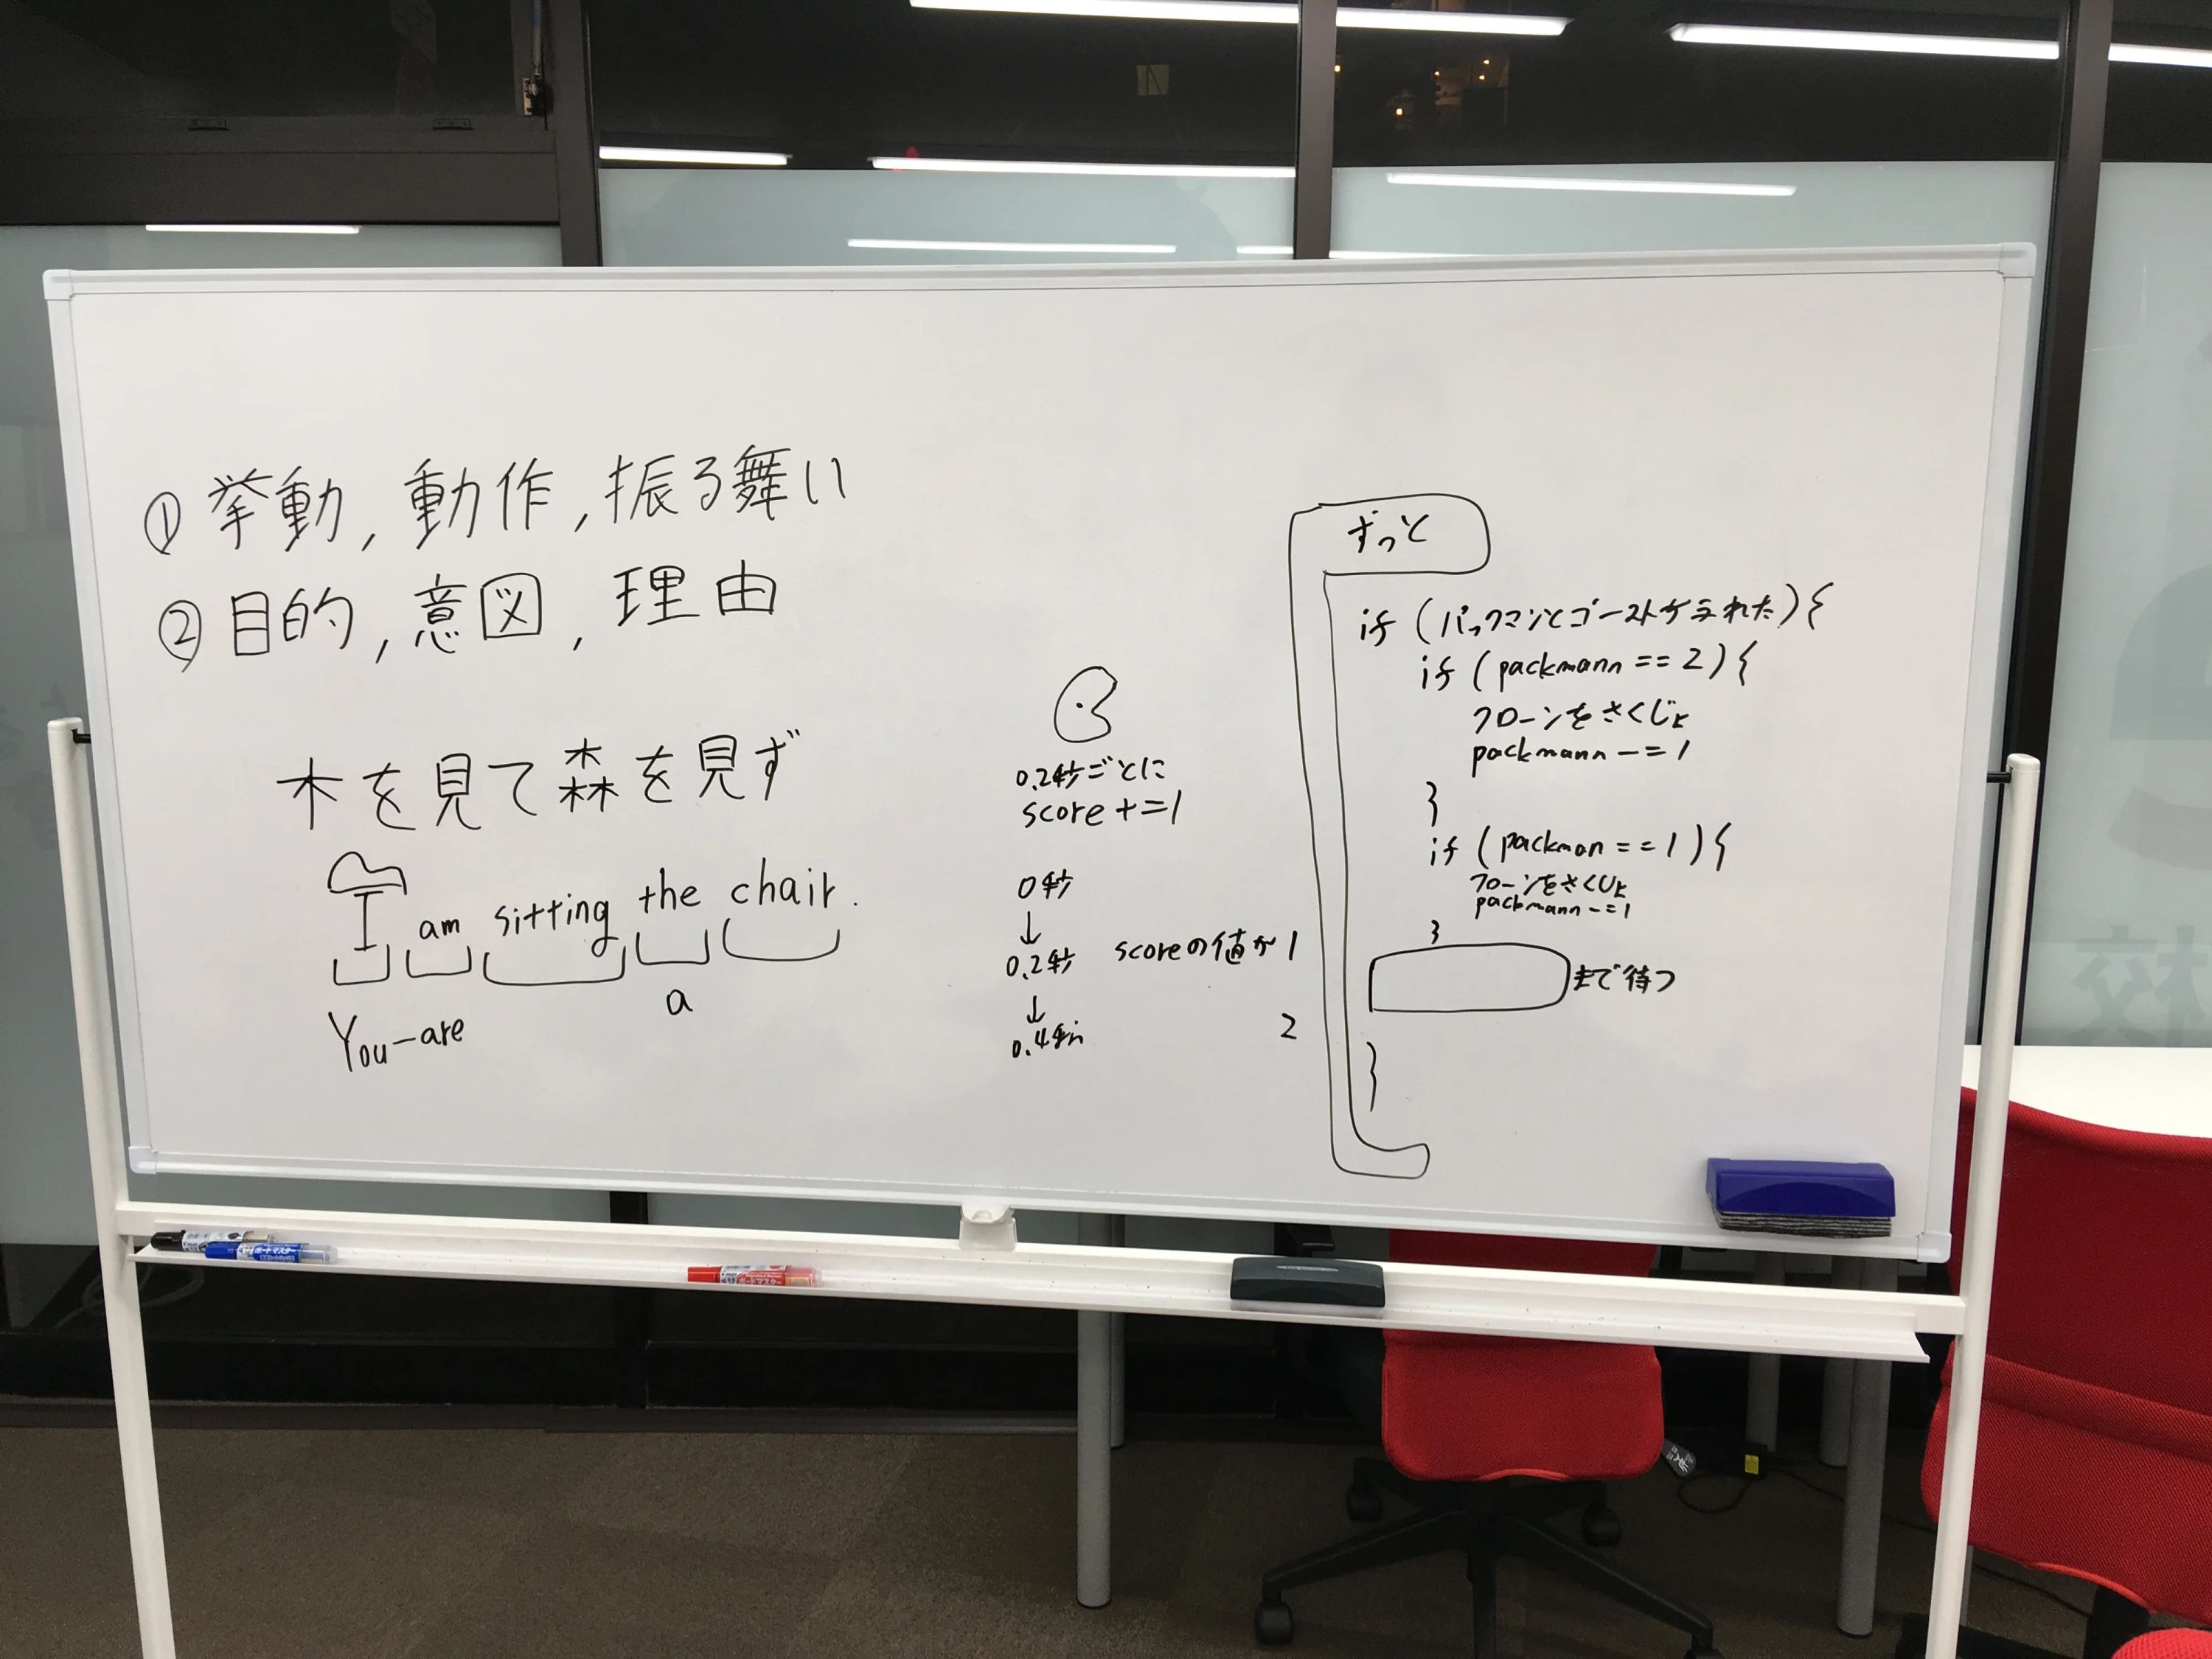 ① 挙動, 動作, 振る舞い
② 目的, 意図, 理由
木を見て森を見ず
I am sitting the chair.
a
You-are
0.2秒ごとに
score+=1
0秒
↓
0.2秒 scoreの値が1
↓
0.4秒 2
ずっと
if (パックマンとゴーストが ふれた) {
if (packmann == 2) {
クローンをさくじょ
packmann -= 1
}
if (packman == 1) {
クローンをさくじょ
packmann -= 1
}
まで待つ
}
ボードマスター
ボードマスター
校